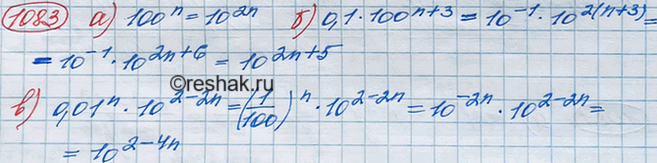 1083 а) 100ⁿ = 10²ⁿ б) 0,1 · 100ⁿ⁺³ = 10⁻¹ · 10²⁽ⁿ⁺³⁾ =
= 10⁻¹ · 10²ⁿ⁺⁶ = 10²ⁿ⁺⁵
©reshak.ru
в) 0,01ⁿ · 10²⁻²ⁿ = (1/100)ⁿ · 10²⁻²ⁿ = 10⁻²ⁿ · 10²⁻²ⁿ =
= 10²⁻⁴ⁿ